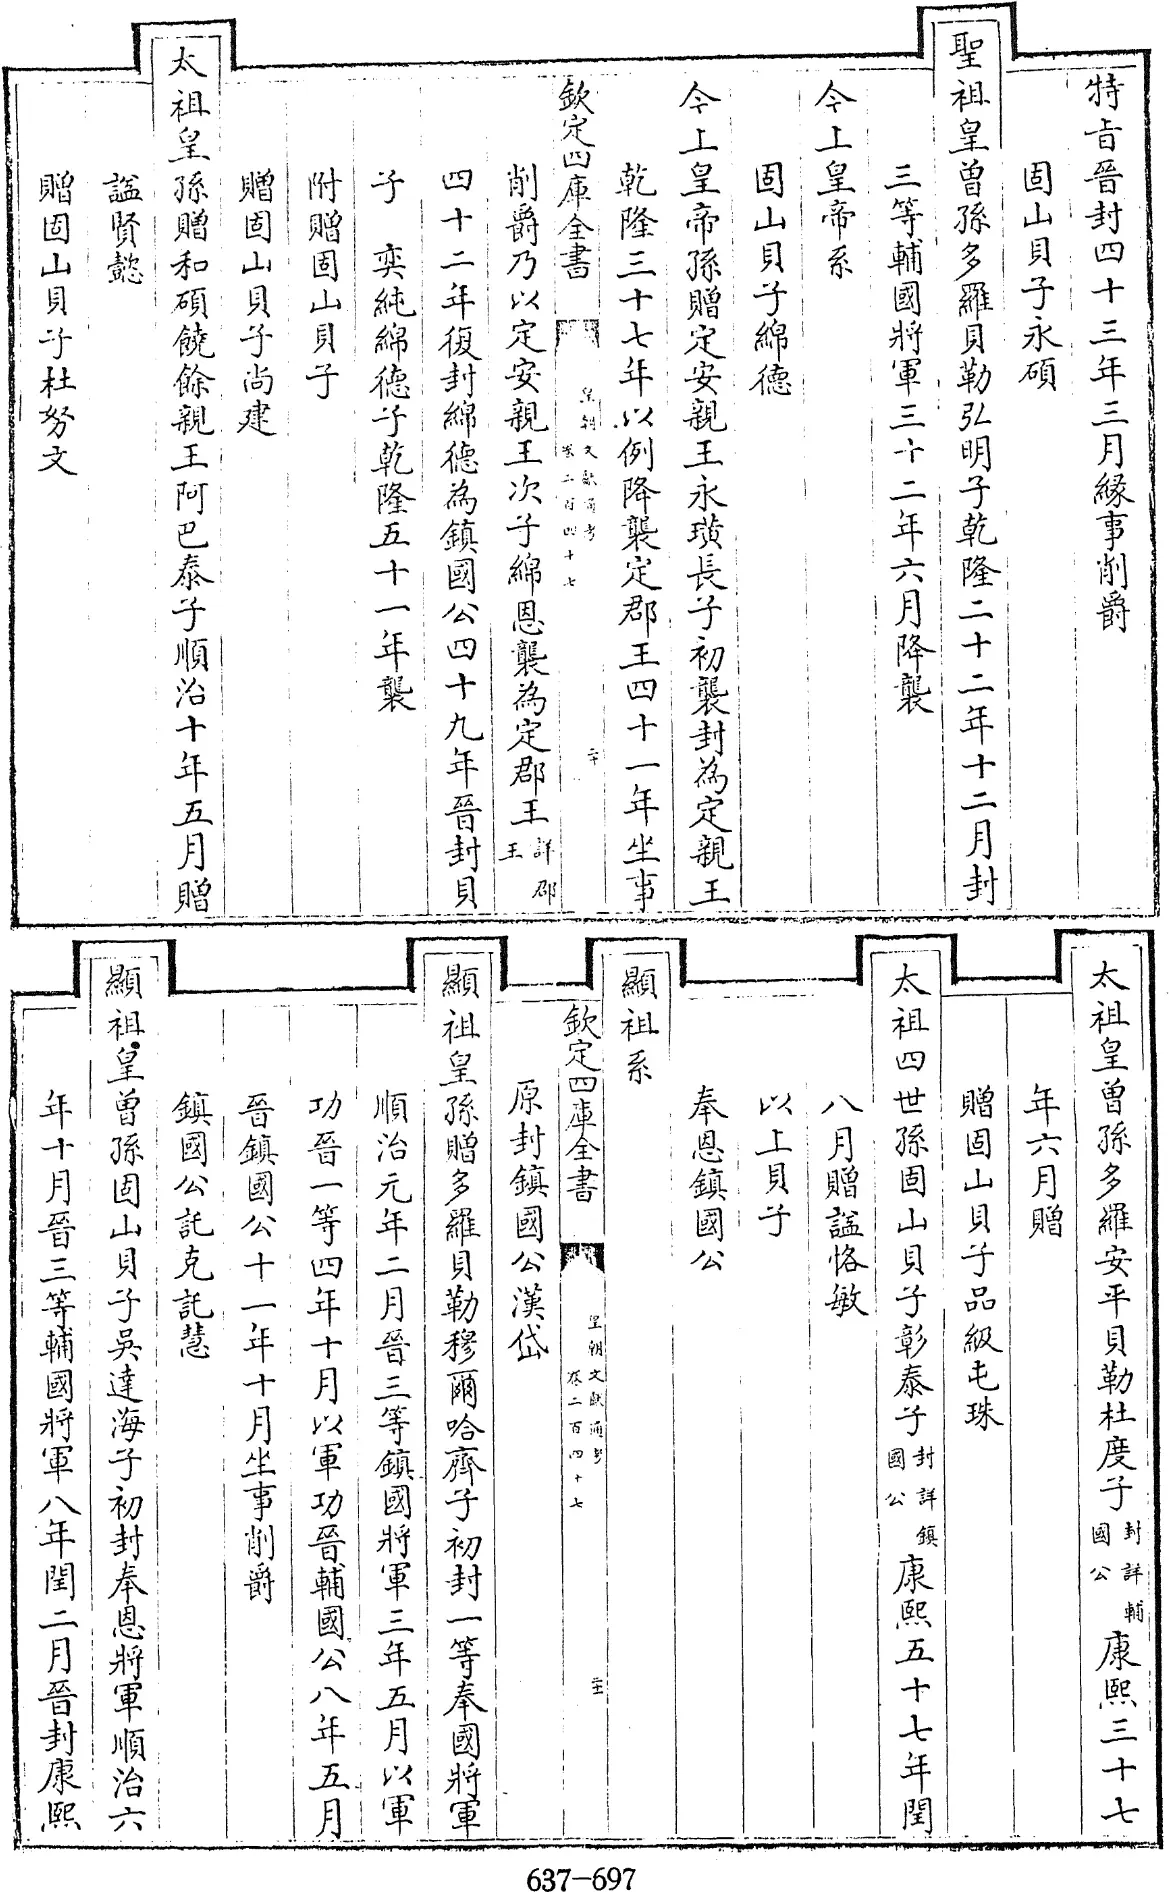 特旨晉封四十三年三月緣事削爵
固山貝子永碩
聖祖皇曾孫多羅貝勒弘明子乾隆二十二年十二月封
三等輔國將軍三十二年六月降襲
今上皇帝系
固山貝子綿德
今上皇帝孫贈定安親王永璜長子初襲封為定親王
乾隆三十七年以例降襲定郡王四十一年坐事
欽定四庫全書
皇朝文獻通考
卷二百四十七
二十
削爵乃以定安親王次子綿恩襲為定郡王詳郡王
四十二年復封綿德為鎮國公四十九年晉封貝
子 奕純綿德子乾隆五十一年襲
附贈固山貝子
贈固山貝子尚建
太祖皇孫贈和碩饒餘親王阿巴泰子順治十年五月贈
謚賢懿
贈固山貝子杜努文
太祖皇曾孫多羅安平貝勒杜度子封詳輔國公康熙三十七
年六月贈
贈固山貝子品級屯珠
太祖四世孫固山貝子彰泰子封詳鎮國公康熙五十七年閏
八月贈謚恪敏
以上貝子
奉恩鎮國公
顯祖系
欽定四庫全書
皇朝文獻通考
卷二百四十七
二十一
原封鎮國公漢岱
顯祖皇孫贈多羅貝勒穆爾哈齊子初封一等奉國將軍
順治元年二月晉三等鎮國將軍三年五月以軍
功晉一等四年十月以軍功晉輔國公八年五月
晉鎮國公十一年十月坐事削爵
鎮國公託克託慧
顯祖皇曾孫固山貝子吳達海子初封奉恩將軍順治六
年十月晉三等輔國將軍八年閏二月晉封康熙
637-697